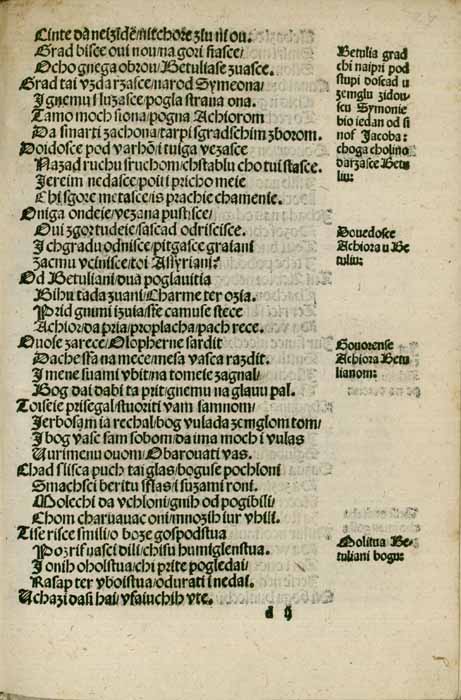 Cinte da neizidē/nitchore zlu ni ou.
Grad bisce oui nou/na gori stasce/
Ocho gnega obrou/Betuliase zuasce.
Grad tai vzda rzasce/narod Symeona/
I gnemu sluzasce/pogla strana ona.
Tamo moch siona/pogna Achiorom
Da smarti zachona/tarpi sgradschim zborom.
Doidosce pod varhō/i tuiga vezasce
Nazad ruchu sruchom/chstablu cho tui stasce.
Iereim nedasce/poiti pricho meie
Chi sgore metasce/is prachie chamenie.
Oniga ondeie/vezana pustisce/
Oui zgor tudeie/sascad odriscisce.
I chgradu odnisce/pitgasce graiani
Zacmu vcinisce/toi Assyriani?
Od Betuliani/dua poglauitia
Bihu tada zuani/Charme ter ozia.
Prid gnimi izuia/ste camuse stece
Achior/da pria/proplacha/pach rece.
Ouose zarece/Olopherne sardit
Dache ssa na mece/mesa vasca razdit.
I mene suami vbit/na tomeie zagnal/
Bog dai dabi ta prit/gnemu na glauu pal.
Toiseie prisegal/stuoriti vam samnom/
Ierbosam ia rechal/bog vulada zemglom tom/
I bog vasc sam sobom/da ima moch i vulas
Vurimenu ouom/Obarouati vas.
Chad slisca puch tai glas/boguse pochloni
Smachsci beritu sslas/i suzami roni.
Molechi da vchloni/gnih od pogibili/
Chom charuauac oni/mnozih iur vbili.
Tise risce smili/o boze gospodstua
Pozri snasci dili/chisu humiglenstua.
I onih oholstua/chi prite pogledai/
Rasap ter vboistua/odurati i nedai.
Uchazi dasi hai/vsaiuchih vte.
d ij
Betulia grad
chi naipri pod
stupi doscad u
zemglu zidou-
scu Symonie
bio iedan od si
nof Jacoba:
choga cholino
darzasce Betu
liu:
Douedosce
Achiora u Be
tuliu:
Gouorense
Achiora Betu
lianom:
Molitua Be-
tuliani bogu: